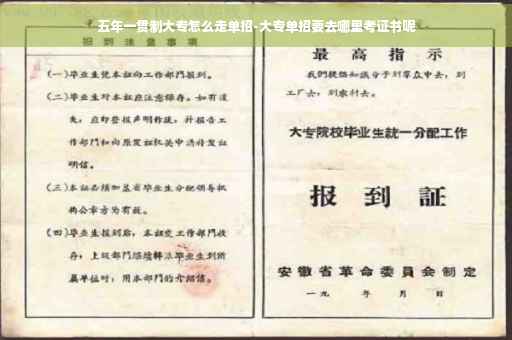 五年一贯制大专怎么走单招-大专单招要去哪里考证书呢
报到注意事项
(一)毕业生凭本证向工作部门报到。
(二)毕业生对本证应注意保存。如有遗
失，应即登报声明作废，并报告工
作部门和向原发证机关申请补发证
明信。
(三)本证必须加盖省毕业生分配领导机
构公章方为有效。
(四)毕业生报到后，本证交工作部门收
存；上级部门
属单位时，用本部门的介绍信。
最高指示
我们提倡知识分子到群众中去，到
工厂去，到农村去。
大专院校毕业生统一分配工作
报到証
安徽省革命委員会制定
一九 年 月 日